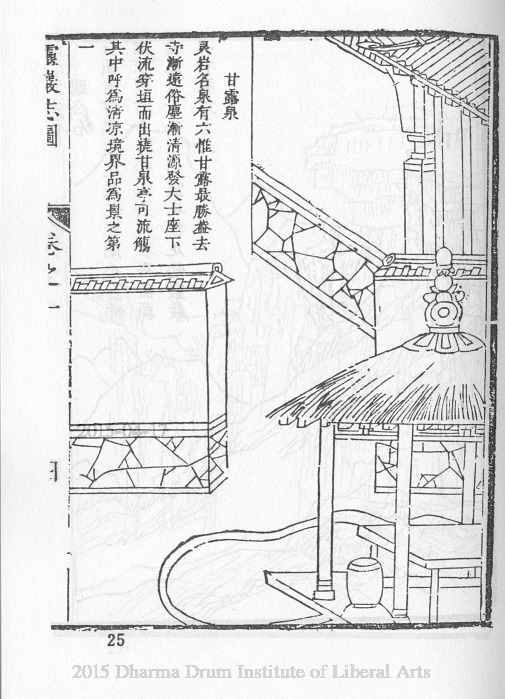 甘露泉
灵岩名泉有六惟甘露最勝盖去
寺漸遠俗塵漸清源發大士座下
伏流穿垣而出繞甘泉亭可流觴
其中呼為清凉境界品為景之第
一
靈巖志圖
卷之一
2015-04-17
25
2015 Dharma Drum Institute of Liberal Arts